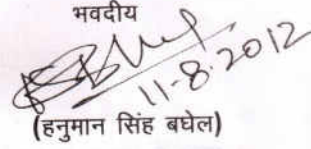 भवदीय
11-8-2012
(हनुमान सिंह बघेल)